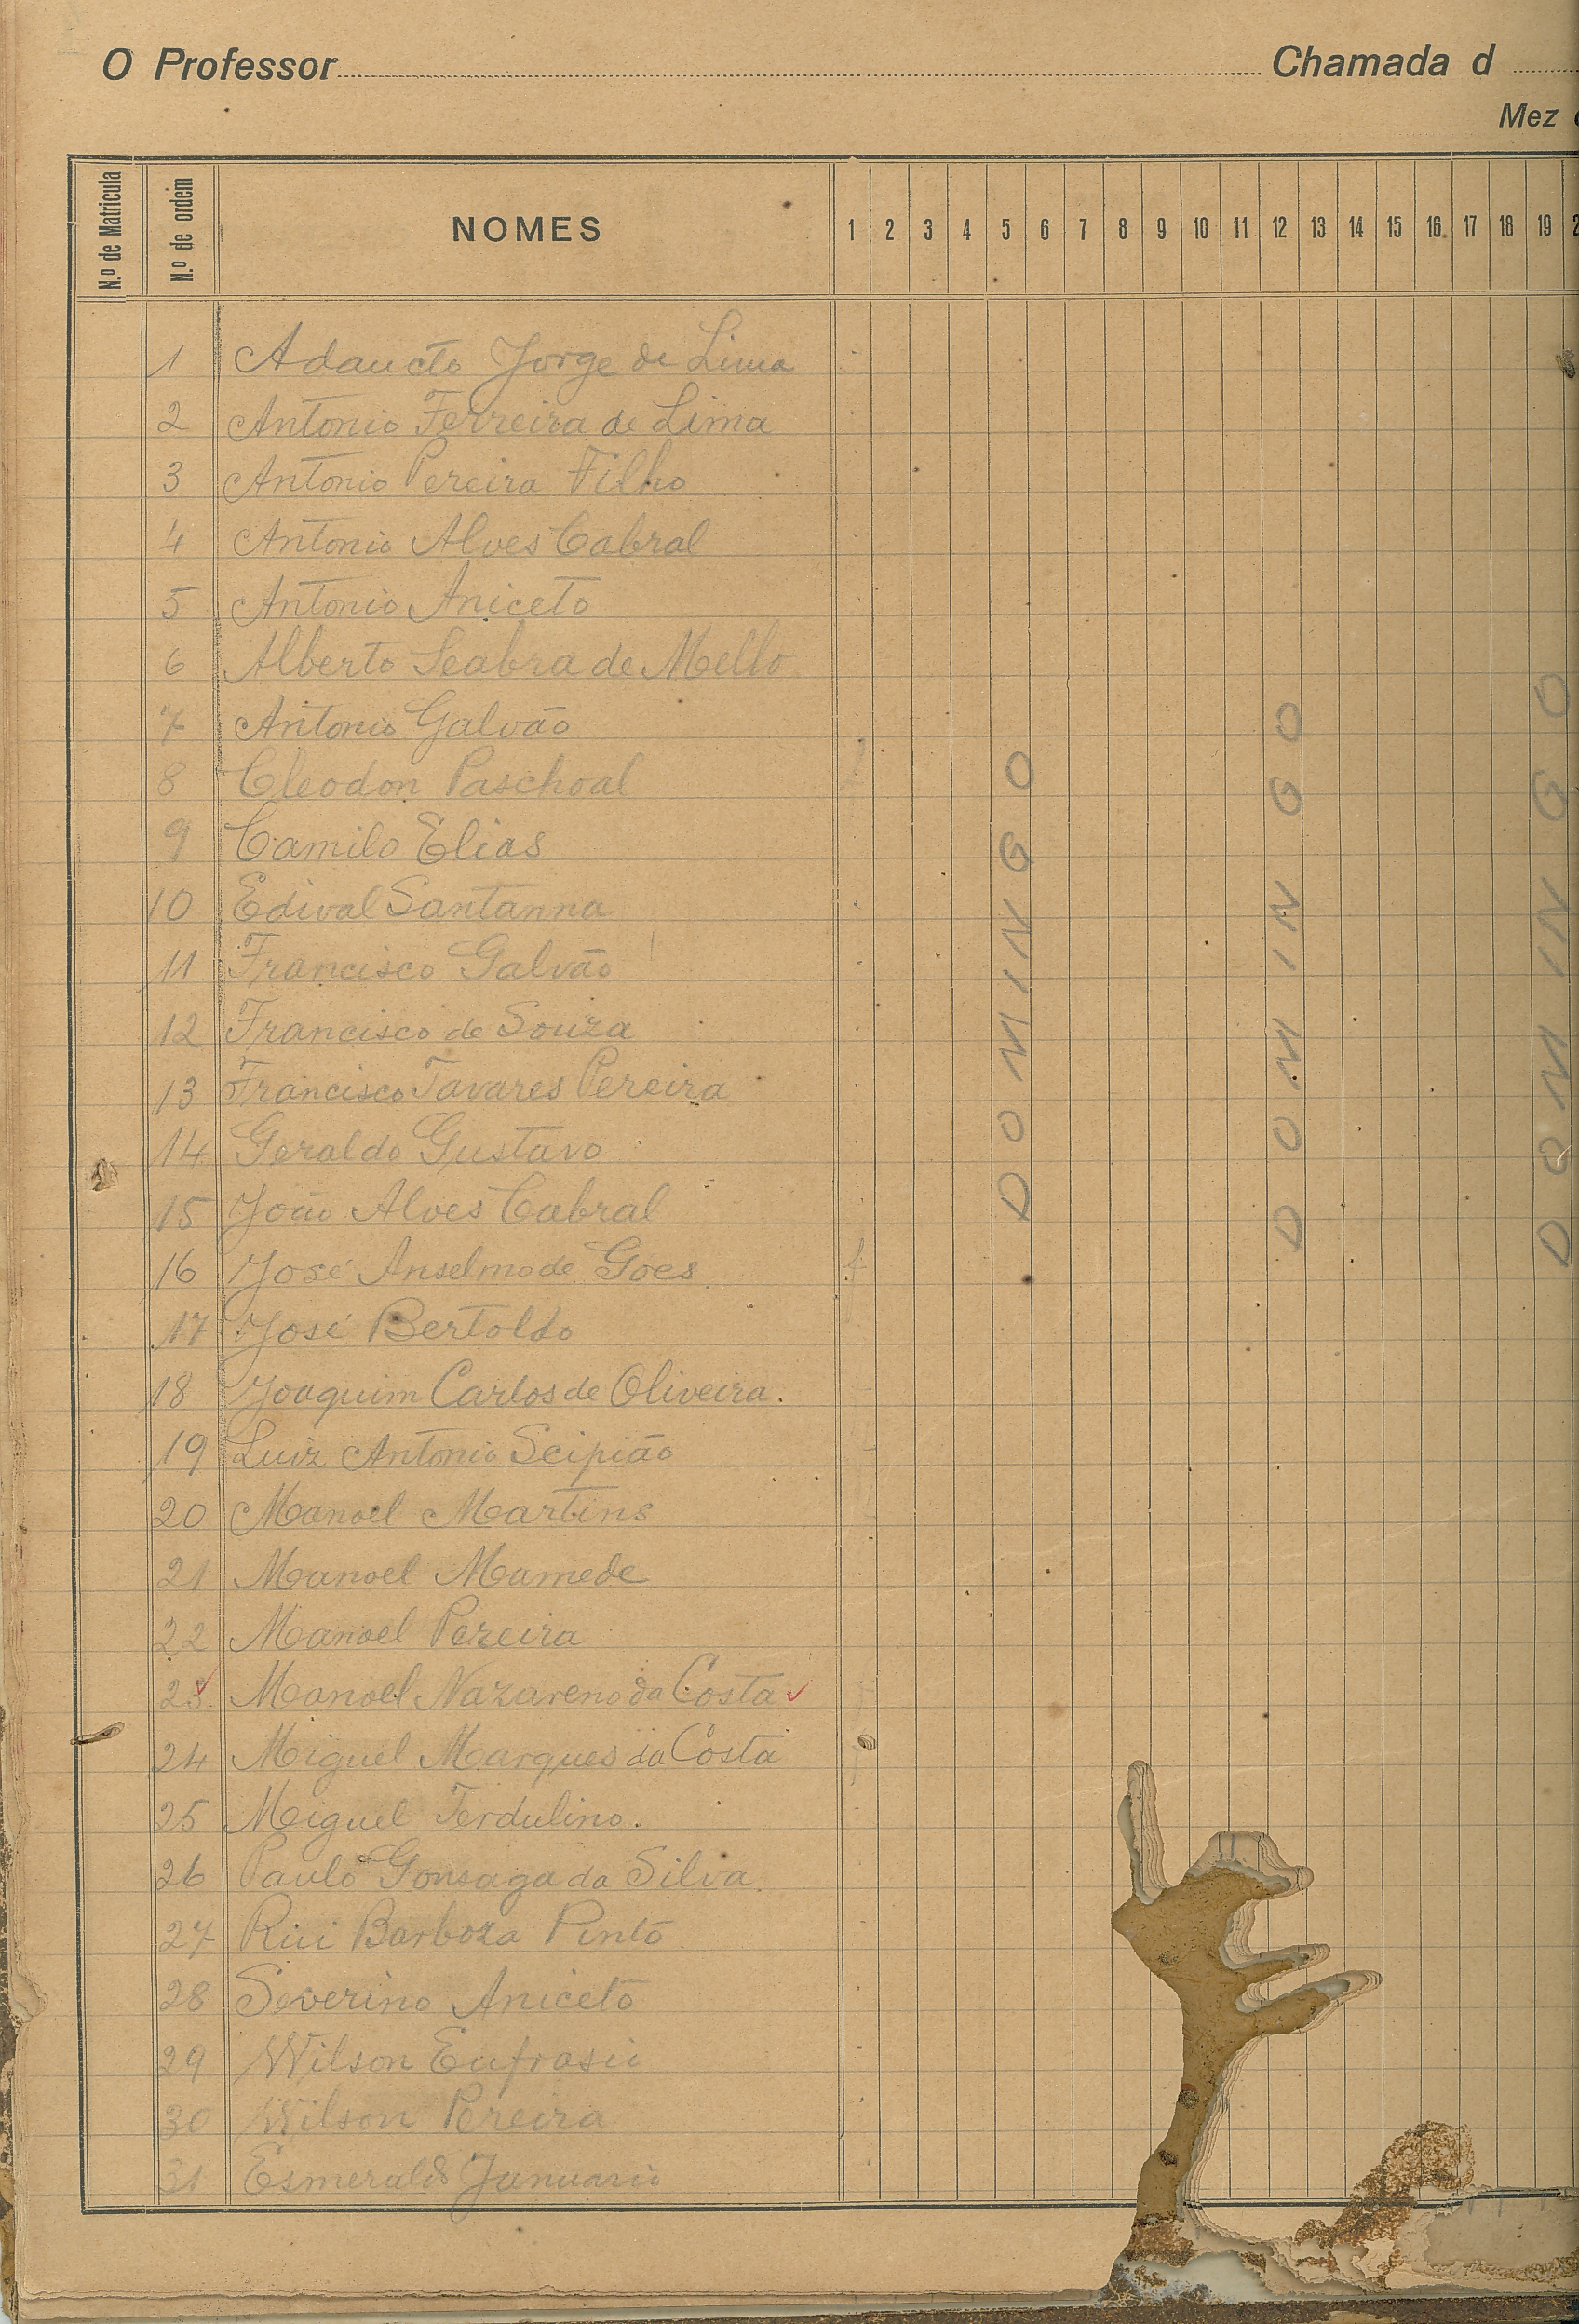 O Professor Chamada d
Mez
N.º de Matricula N.º de ordem NOMES 1 2 3 4 5 6 7 8 9 10 11 12 13 14 15 16 17 18 19 2
1 Adaucto Jorge de Lima
2 Antonio Ferreira de Lima
3 Antonio Pereira Filho
4 Antonio Alves Cabral
5 Antonio Aniceto
6 Alberto Seabra de Mello
7 Antonio Galvão
8 Cleodon Paschoal
9 Camilo Elias
10 Edival Santanna
11 Francisco Galvão
12 Francisco de Souza
13 Francisco Tavares Pereira
14 Geraldo Gustavo
15 João Alves Cabral
16 José Anselmo de Goes f
17 José Bertoldo
18 Joaquim Carlos de Oliveira.
19 Luiz Antonio Scipião
20 Manoel Martins
21 Manoel Mamede
22 Manoel Pereira
23 Manoel Nazareno da Costa
24 Miguel Marques da Costa
25 Miguel Terdulino.
26 Paulo Gonsaga da Silva
27 Rui Barboza Pinto
28 Severino Aniceto
29 Wilson Eufrasio
30 Wilson Pereira
31 Esmeraldo Januario
DOMINGO
DOMINGO
DOMINGO